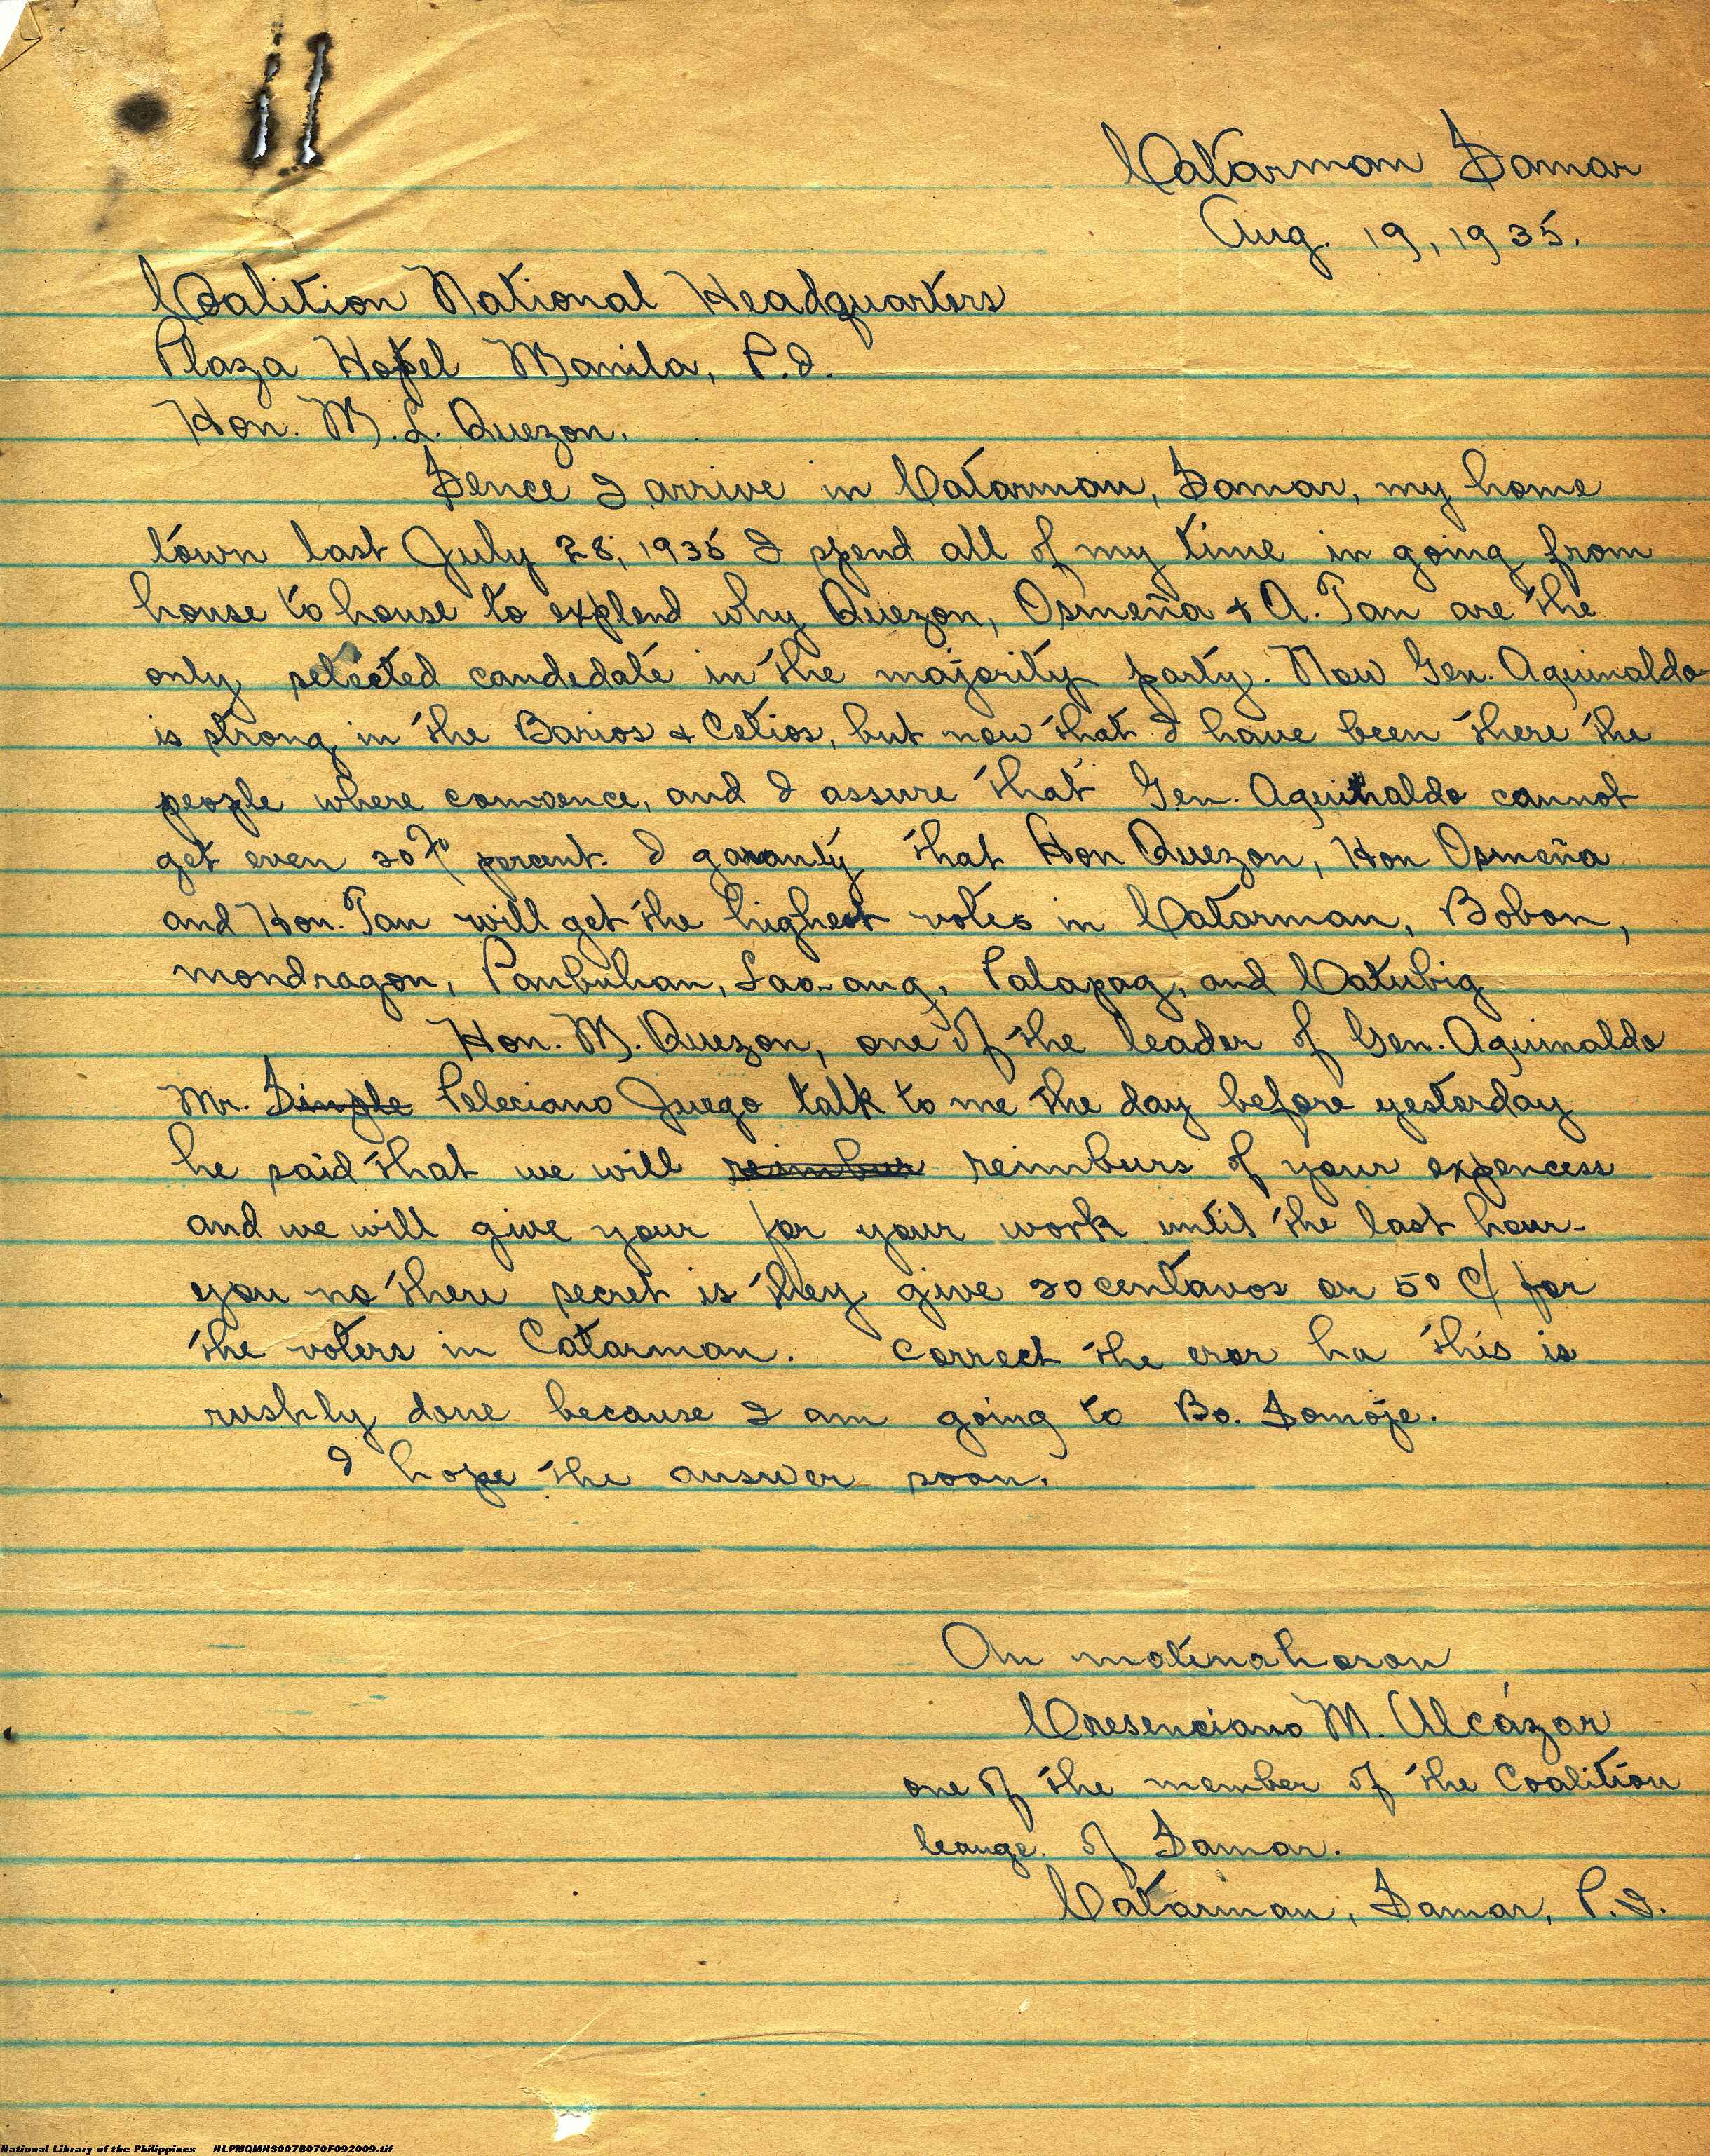 Catarman Samar
Aug. 19, 1935.
Coalition National Headquarters
Plaza Hotel Manila, P.I.
Hon. M.L. Quezon.
Sence I arrive in Catarman, Samar, my home
town last July 28, 1935 I spend all of my time in going from
house to house to explend why Quezon, Osmeña & A. Tan are the
only selected candedate in the majority party. Now Gen. Aguinaldo
is strong in the Barios & Cetios, but now that I have been there the
people where convence, and I assure that Gen. Aguinaldo cannot
get even 20% percent. I garanty that Hon Quezon, Hon Osmeña
and Hon. Tan will get the highest votes in Catarman, Bobon,
mondragon, Panbuhan, Lao-ang, Palapag, and Catubig
Hon. M. Quezon, one of the leader of Gen. Aguinaldo
Mr. Simple Peleciano Juego talk to me the day before yesterday
he said that we will reimbur reimburs of your expencess
and we will give your for your work until the last hour-
you no there secret is they give 20 centavos or 50 ¢ for
the voters in Catarman. Correct the eror ha this is
rushly done because I am going to Bo. Somoje.
I hope the answer soon.
An matinahoron
Cresenciano M. Alcázar
one of the member of the Coalition
leauge of Samar.
Catarman, Samar, P.I.
National Library of the Philippines NLPMQMNS007B070F092009.tif